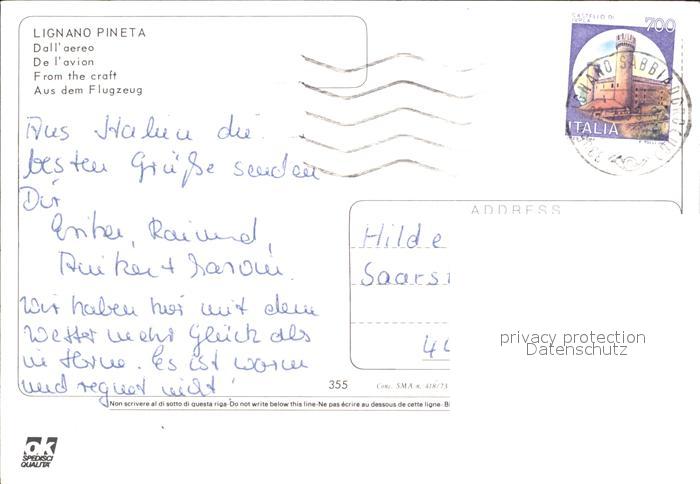 LIGNANO PINETA
Dall'aereo
De l'avion
From the craft
Aus dem Flugzeug
Aus Italien die
besten Grüße senden
Dir
Erika, Raimund,
Anike +
Wir haben hier mit dem
Wetter mehr Glück als
in Herne. Es ist warm
und regnet nicht!
CASTELLO DI
700
ITALIA
GNANO SABBIADORO
ADDRESS
Hilde
Saars
44
privacy protection
Datenschutz
355
Conc. SMA n. 418/73
Non scrivere al di sotto di questa riga-Do not write below this line-Ne pas écrire au dessous de cette ligne-B
ok
SPEDISCI
QUALITA'